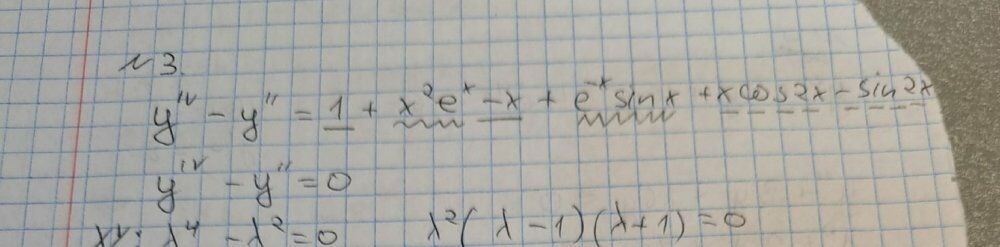 №3.
yᴵⱽ - y'' = 1 + x²eˣ - x + e⁻ˣ sin x + x cos 2x - sin 2x
yᴵⱽ - y'' = 0
ХУ: λ⁴ - λ² = 0 λ²(λ - 1)(λ + 1) = 0